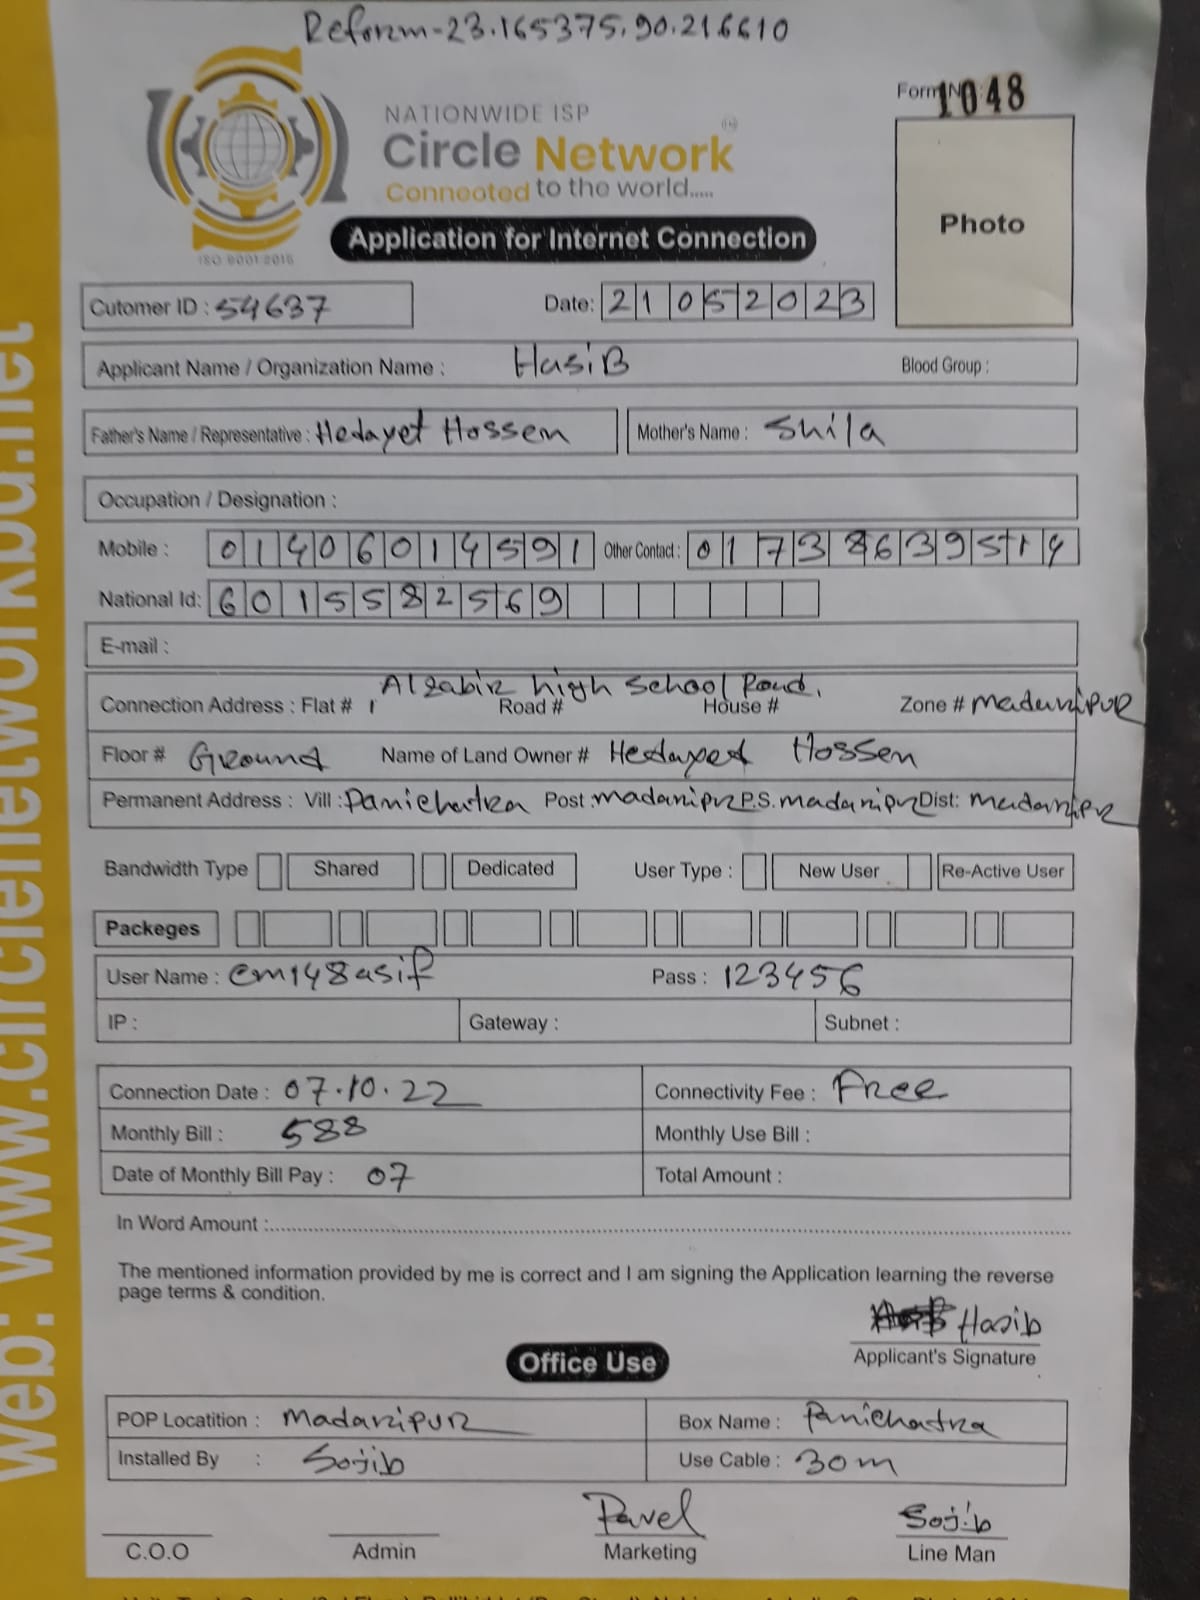 Reform-23.165375,90.216610
NATIONWIDE ISP
Circle Network
Connected to the world.....
ISO 9001:2015
Form N 1048
Photo
Application for Internet Connection
Cutomer ID : 54637 Date: 21052023
Applicant Name / Organization Name : HasiB Blood Group :
Father's Name / Representative : Hedayet Hossen Mother's Name : Shila
Occupation / Designation :
Mobile : 01406014591 Other Contact : 0173
National Id: 6015582569
E-mail :
high School Road,
Connection Address : Flat # Road # House # Zone # madaripur
Floor # Ground Name of Land Owner # Hedayed Hossen
Permanent Address : Vill : Panichatra Post : madaripr P.S. madaripr Dist: madaripr
Bandwidth Type Shared Dedicated User Type : New User Re-Active User
Packeges
User Name : cm148asif Pass : 123456
IP : Gateway : Subnet :
Connection Date : 07.10.22 Connectivity Fee : Free
Monthly Bill : 588 Monthly Use Bill :
Date of Monthly Bill Pay : 07 Total Amount :
In Word Amount :
The mentioned information provided by me is correct and I am signing the Application learning the reverse
page terms & condition.
Hasib
Applicant's Signature
Office Use
POP Locatition : Madaripur Box Name : Panichatra
Installed By : Sojib Use Cable : 30m
Pavel Sojib
C.O.O Admin Marketing Line Man
web: www.circlenetworkbd.net